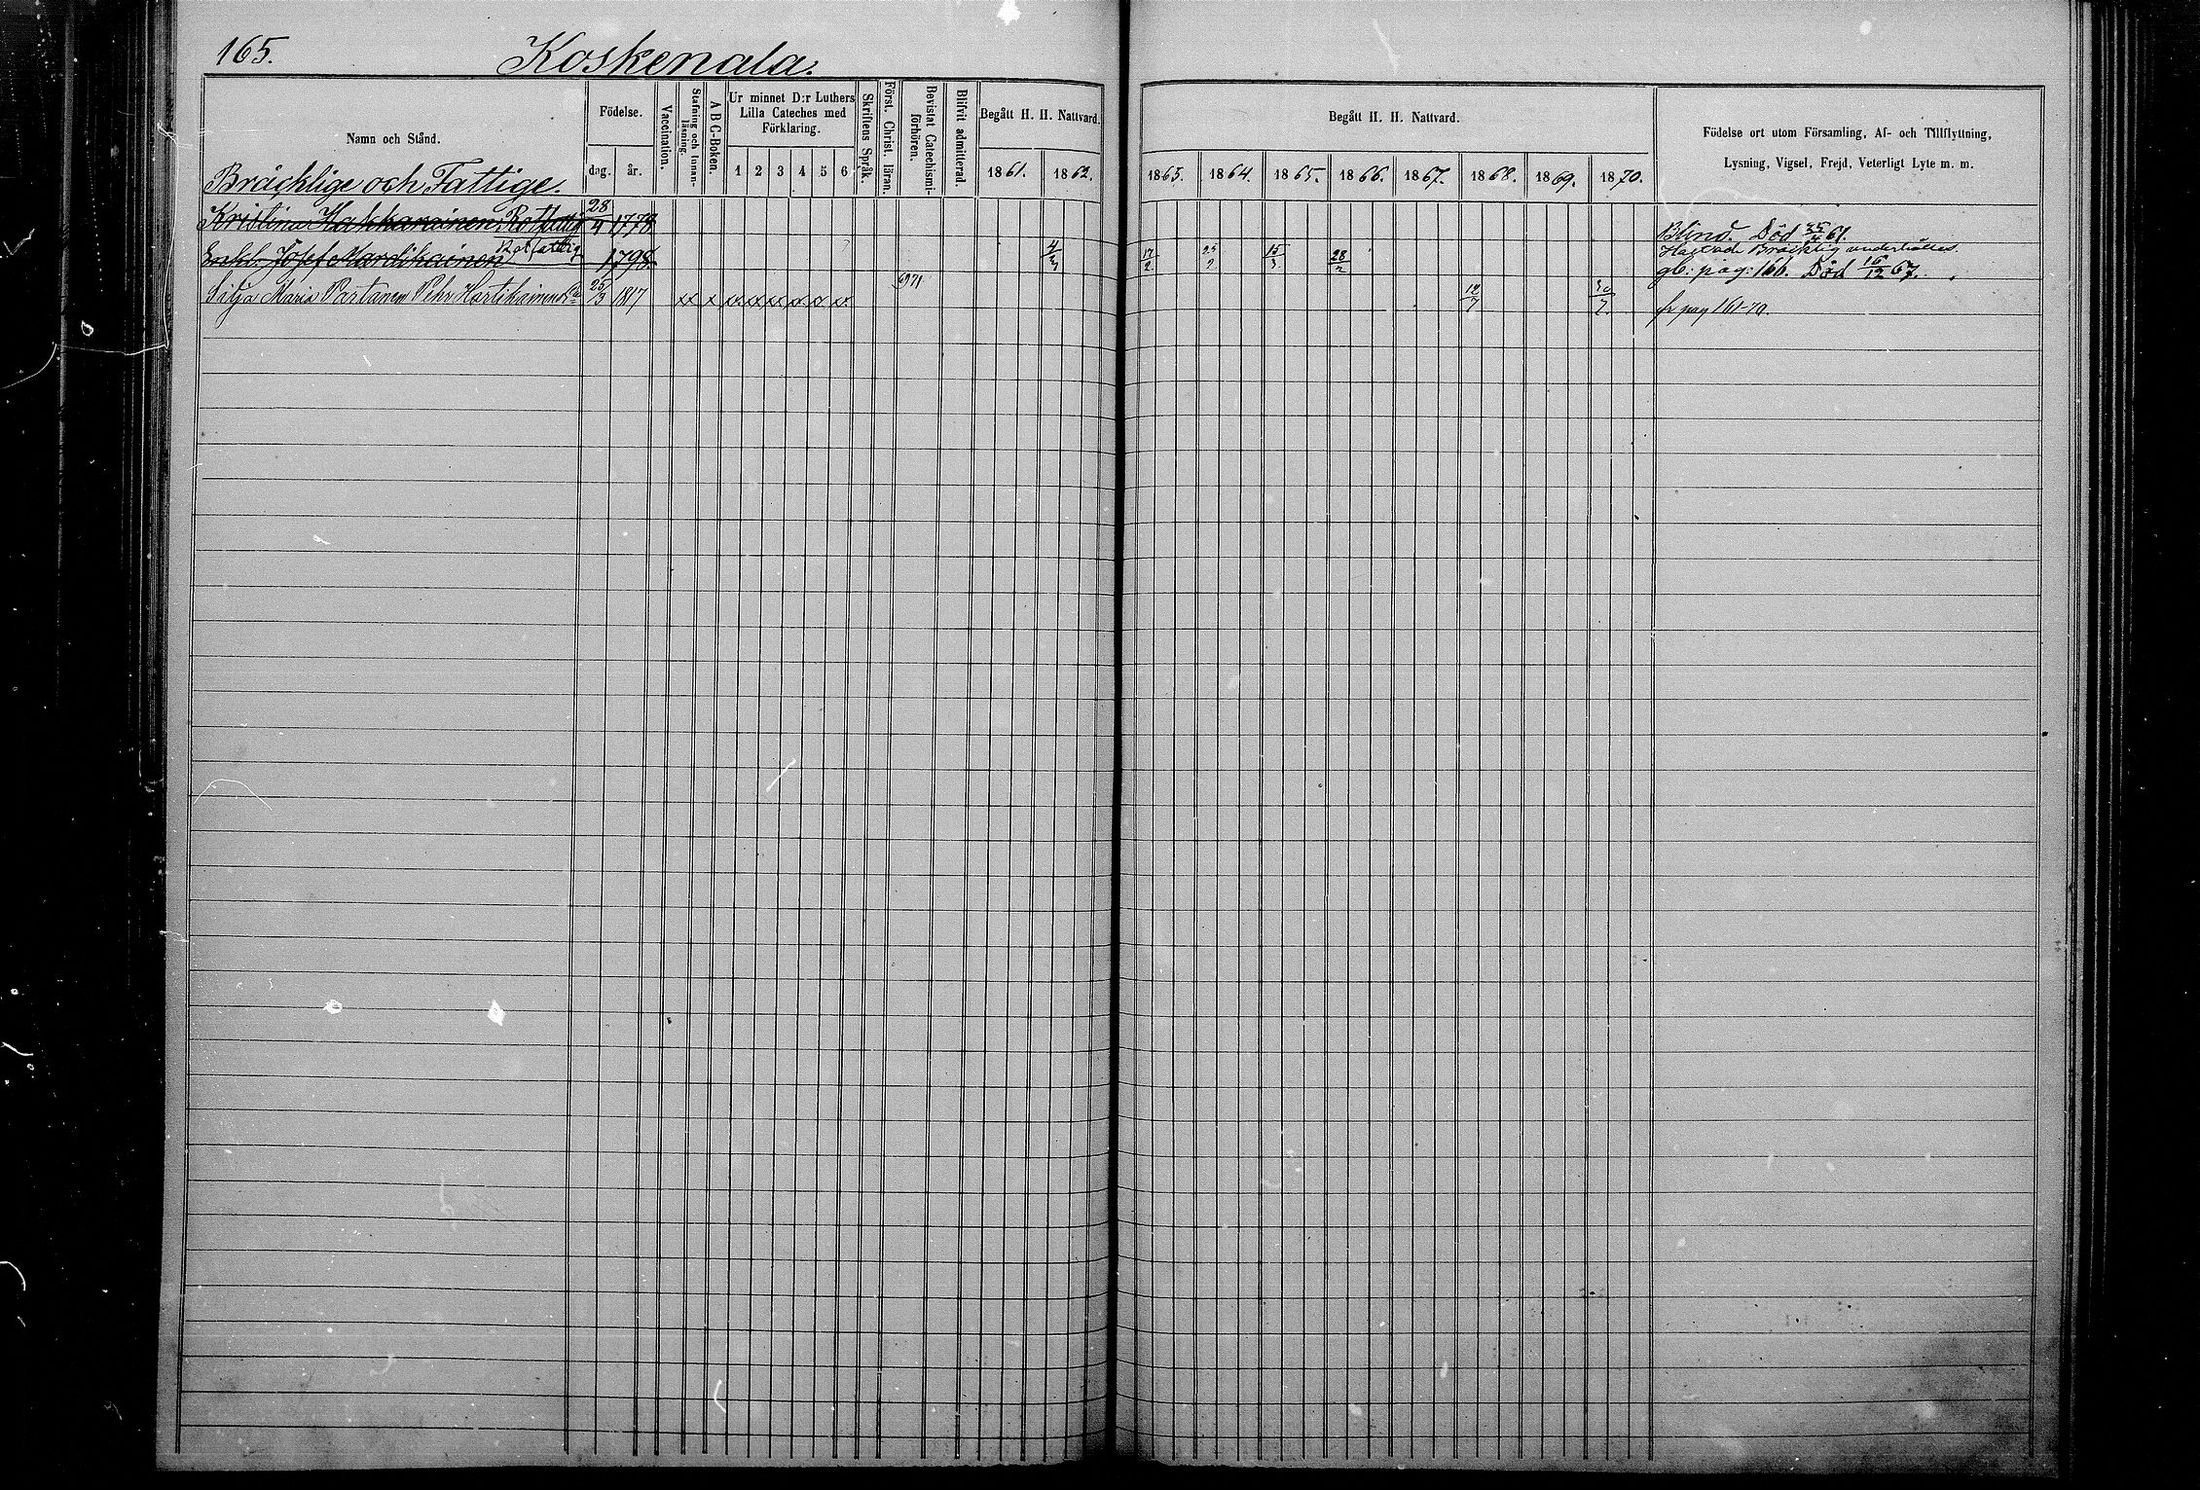 165. Koskenala.
Namn och Stånd.
Födelse.
dag. år.
Vaccination.
Stafning och Innan-läsning.
A B C-Boken.
Ur minnet D:r Luthers
Lilla Cateches med
Förklaring.
1 2 3 4 5 6
Skriftens Språk.
Först. Christ. läran.
Bevistat Catechismi-förhören.
Blifvit admitterad.
Begått H. H. Nattvard.
1861. 1862.
Begått H. H. Nattvard.
1863. 1864. 1865. 1866. 1867. 1868. 1869. 1870.
Födelse ort utom Församling, Af- och Tillflyttning,
Lysning, Vigsel, Frejd, Veterligt Lyte m. m.
Bräcklige och Fattige.
Kristina Hakkarainen Rotfattig 28/4 1778 Blind. Död 25/4 61.
Enkl. Josef Mardikainen Rotfattig 1798 4/3 17/2 28/2 15/3 Bräcklig underhålles
gb: pag: 166. Död 16/12 67.
Silja Maria Partanen Pehr Hartikainens 25/3 1817 x x x 12/7 fr pag 161-70.